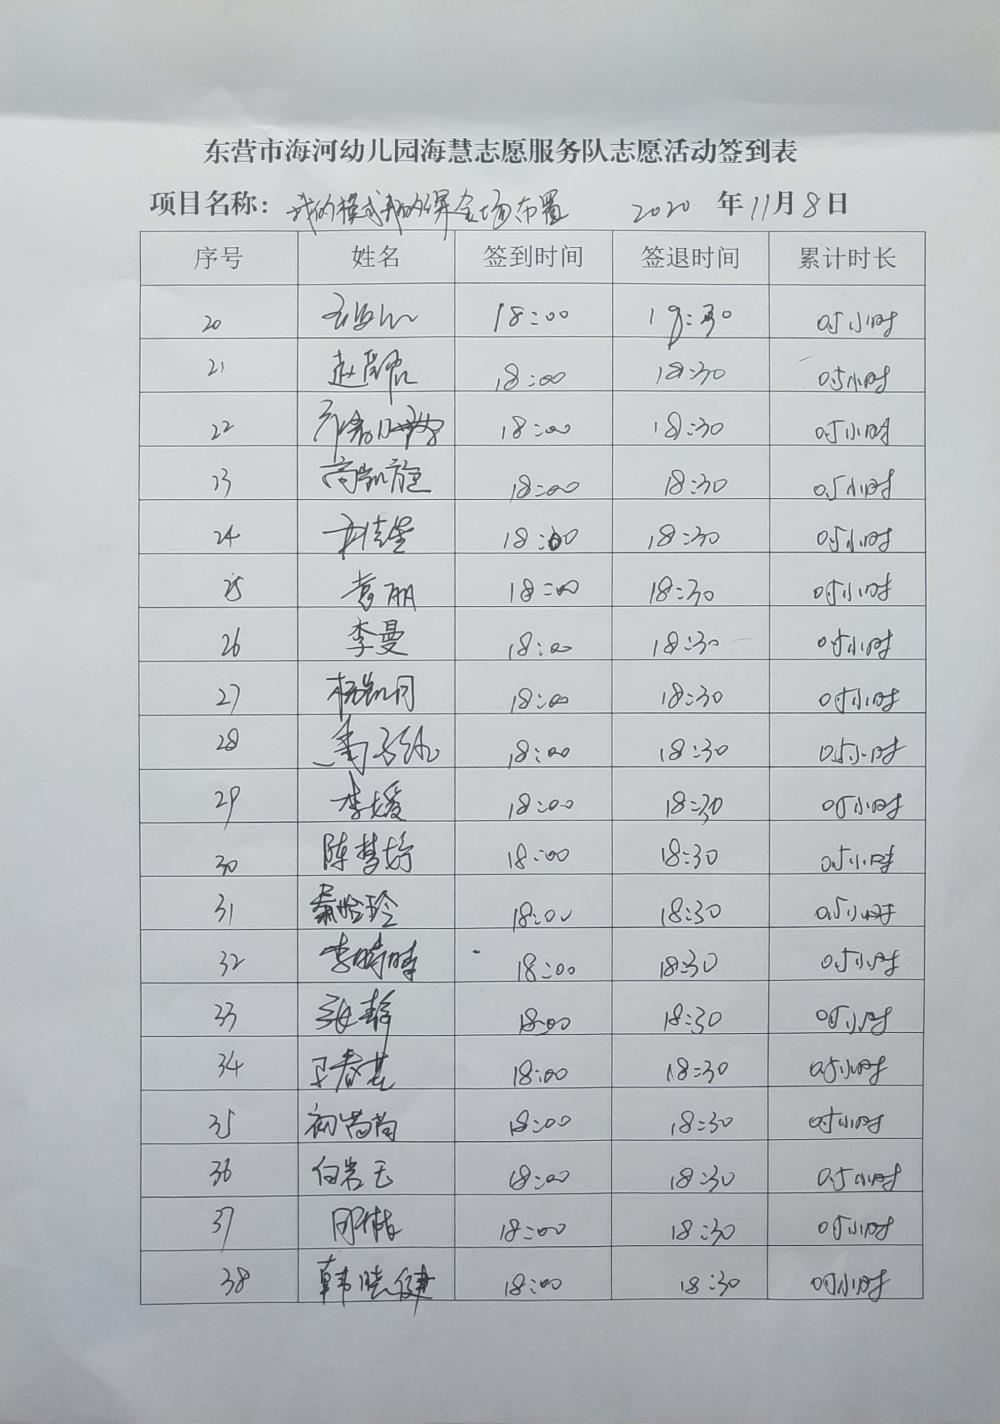 东营市海河幼儿园海慧志愿服务队志愿活动签到表
项目名称：我的模式我的课会场布置 2020 年11月8日
序号 姓名 签到时间 签退时间 累计时长
20 18:00 18:30 0.5小时
21 18:00 18:30 0.5小时
22 18:00 18:30 0.5小时
23 高凯旋 18:00 18:30 0.5小时
24 18:00 18:30 0.5小时
25 袁丽 18:00 18:30 0.5小时
26 李曼 18:00 18:30 0.5小时
27 杨凯同 18:00 18:30 0.5小时
28 18:00 18:30 0.5小时
29 李媛 18:00 18:30 0.5小时
30 陈梦婷 18:00 18:30 0.5小时
31 秦怡玲 18:00 18:30 0.5小时
32 李晴晴 18:00 18:30 0.5小时
33 张静 18:00 18:30 0.5小时
34 王春甚 18:00 18:30 0.5小时
35 初尚尚 18:00 18:30 0.5小时
36 白岩玉 18:00 18:30 0.5小时
37 18:00 18:30 0.5小时
38 韩晓健 18:00 18:30 0.5小时